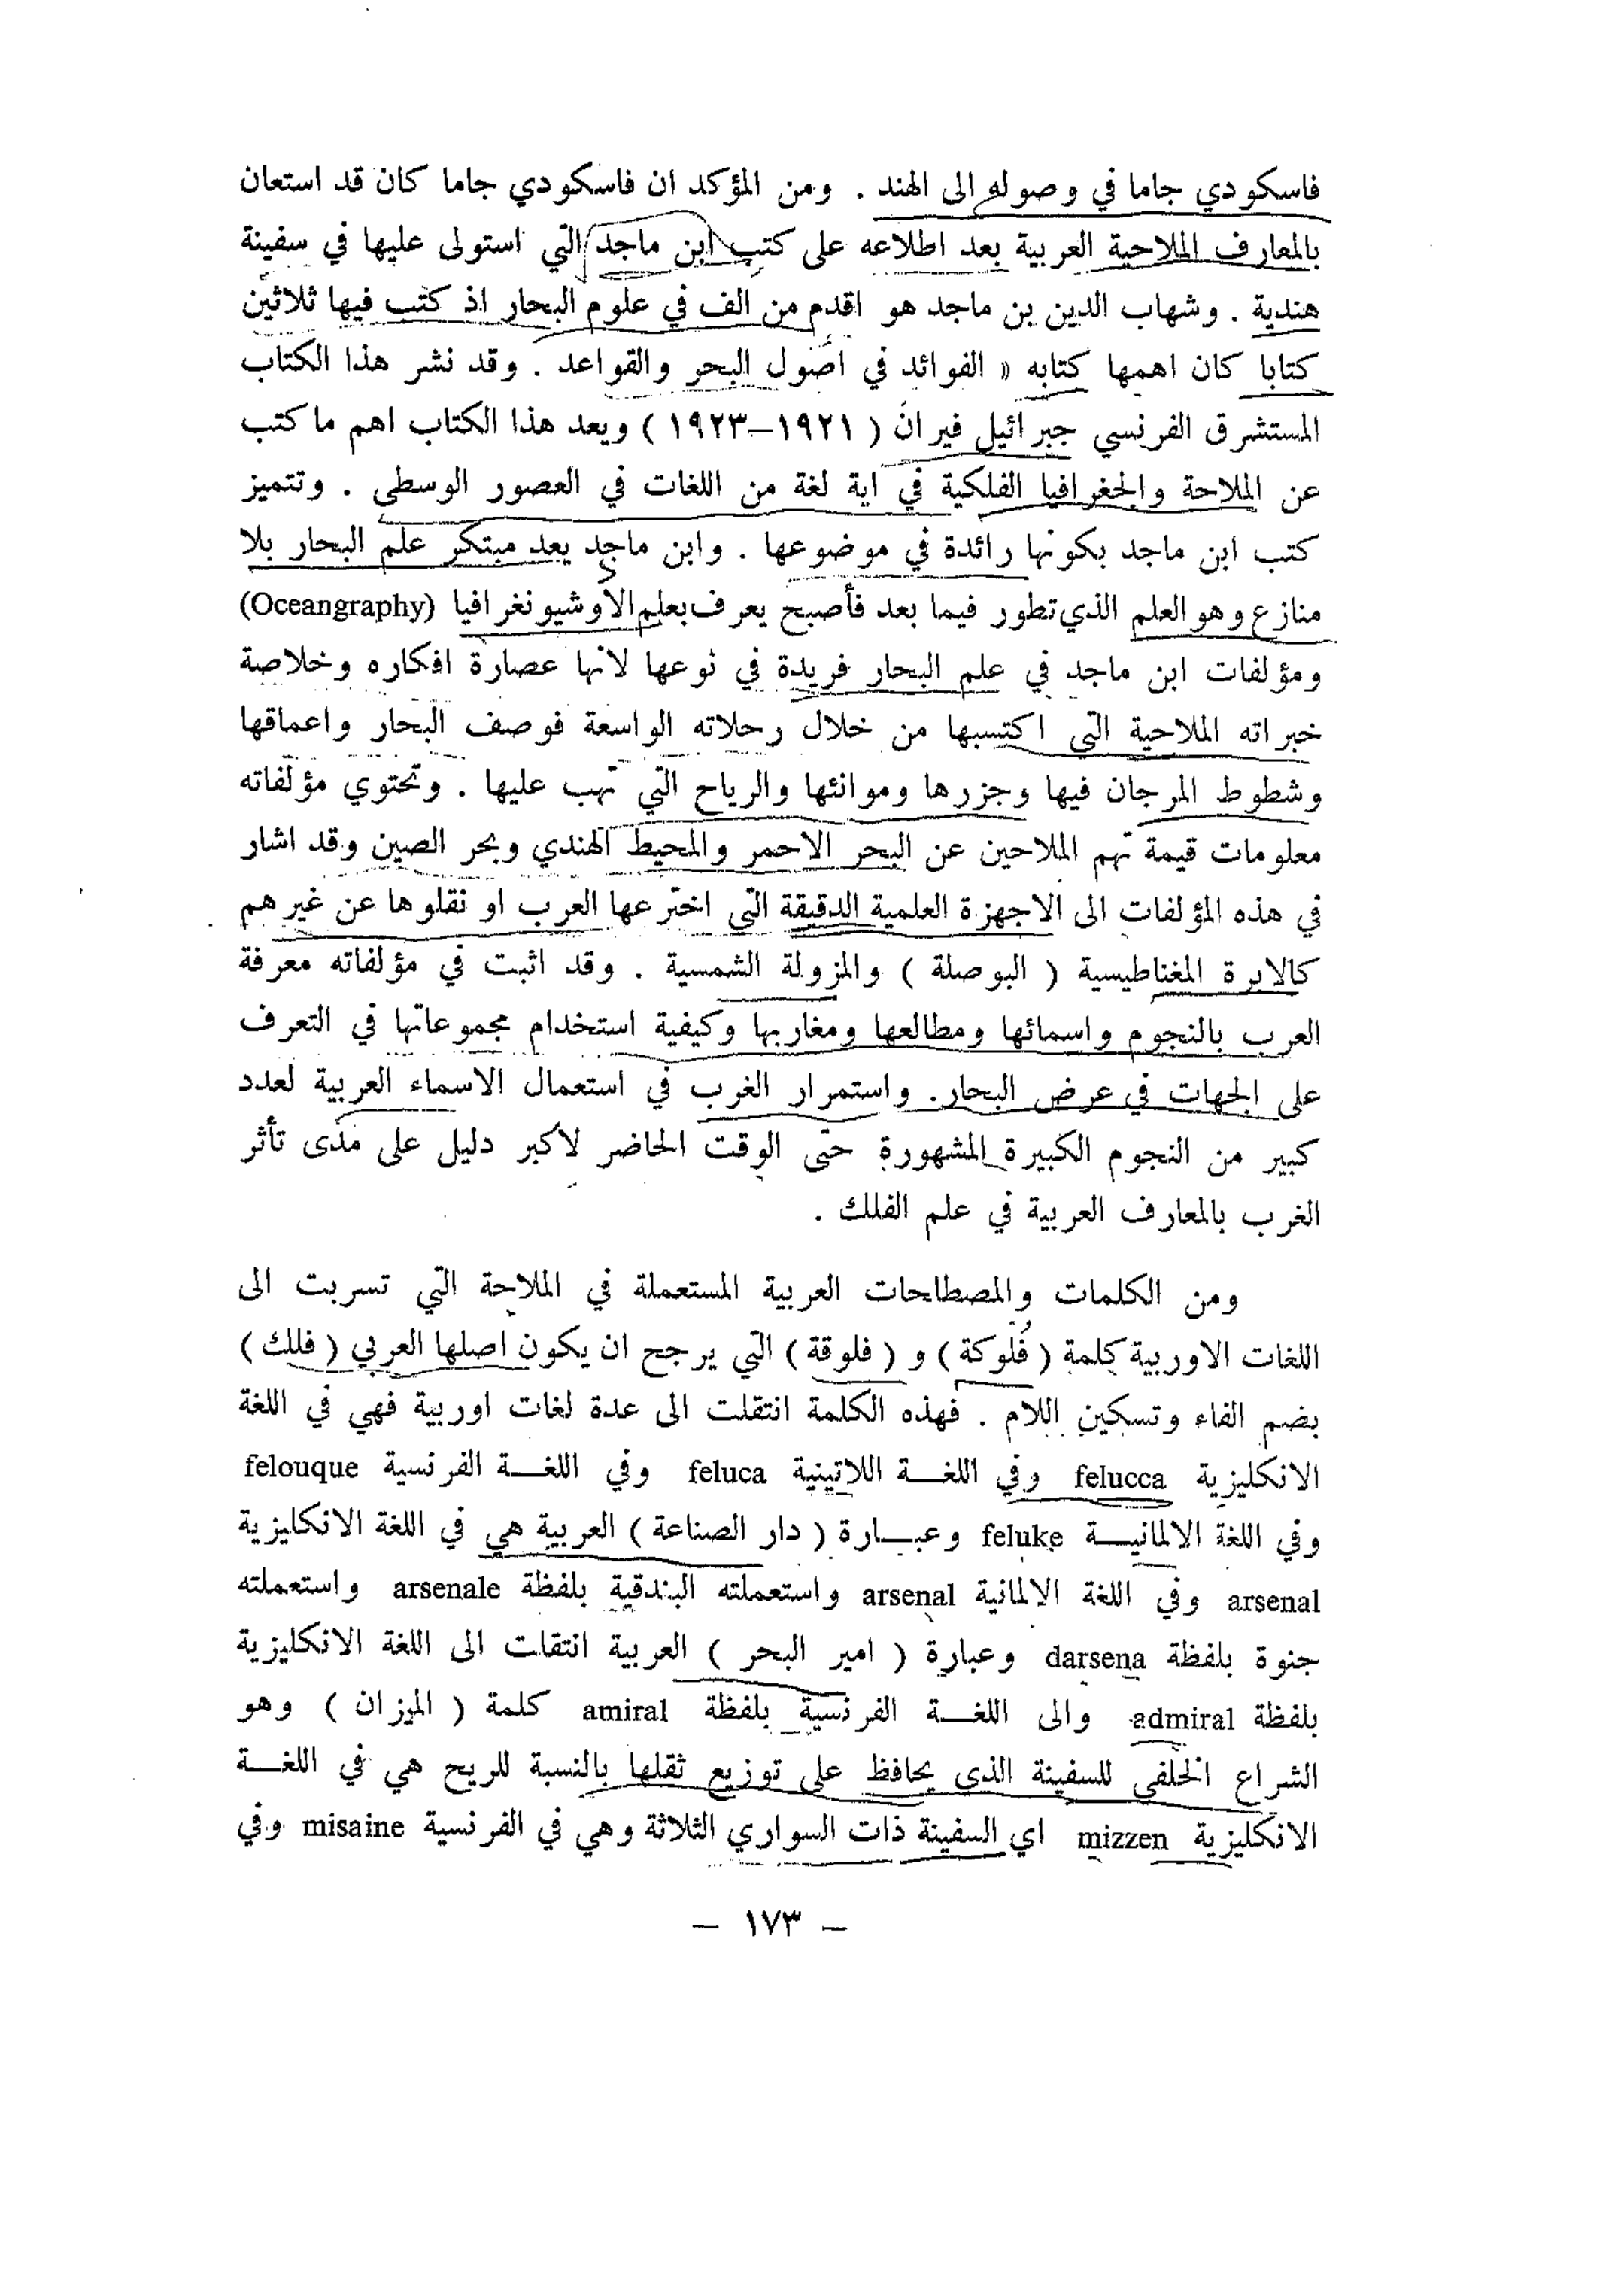 فاسكودي جاما في وصوله الى الهند . ومن المؤكد ان فاسكودي جاما كان قد استعان
بالمعارف الملاحية العربية بعد اطلاعه على كتب ابن ماجد التي استولى عليها في سفينة
هندية . وشهاب الدين بن ماجد هو اقدم من الف في علوم البحار اذ كتب فيها ثلاثين
كتابا كان اهمها كتابه « الفوائد في اصول البحر والقواعد . وقد نشر هذا الكتاب
المستشرق الفرنسي جبرائيل فيران ( ١٩٢١–١٩٢٣ ) ويعد هذا الكتاب اهم ما كتب
عن الملاحة والجغرافيا الفلكية في اية لغة من اللغات في العصور الوسطى . وتتميز
كتب ابن ماجد بكونها رائدة في موضوعها . وابن ماجد يعد مبتكر علم البحار بلا
منازع وهو العلم الذي تطور فيما بعد فأصبح يعرف بعلم الأوشيونغرافيا (Oceangraphy)
ومؤلفات ابن ماجد في علم البحار فريدة في نوعها لانها عصارة افكاره وخلاصة
خبراته الملاحية التي اكتسبها من خلال رحلاته الواسعة فوصف البحار واعماقها
وشطوط المرجان فيها وجزرها وموانئها والرياح التي تهب عليها . وتحتوي مؤلفاته
معلومات قيمة تهم الملاحين عن البحر الاحمر والمحيط الهندي وبحر الصين وقد اشار
في هذه المؤلفات الى الاجهزة العلمية الدقيقة التي اخترعها العرب او نقلوها عن غيرهم
كالابرة المغناطيسية ( البوصلة ) والمزولة الشمسية . وقد اثبت في مؤلفاته معرفة
العرب بالنجوم واسمائها ومطالعها ومغاربها وكيفية استخدام مجموعاتها في التعرف
على الجهات في عرض البحار. واستمرار الغرب في استعمال الاسماء العربية لعدد
كبير من النجوم الكبيرة المشهورة حتى الوقت الحاضر لأكبر دليل على مدى تأثر
الغرب بالمعارف العربية في علم الفلك .
ومن الكلمات والمصطلحات العربية المستعملة في الملاحة التي تسربت الى
اللغات الاوربية كلمة ( فُلوكة ) و ( فلوقة ) التي يرجح ان يكون اصلها العربي ( فلك )
بضم الفاء وتسكين اللام . فهذه الكلمة انتقلت الى عدة لغات اوربية فهي في اللغة
الانكليزية felucca وفي اللغـــة اللاتينية feluca وفي اللغـــة الفرنسية felouque
وفي اللغة الالمانيـــة feluke وعبـــارة ( دار الصناعة ) العربية هي في اللغة الانكليزية
arsenal وفي اللغة الالمانية arsenal واستعملته البندقية بلفظة arsenale واستعملته
جنوة بلفظة darsena وعبارة ( امير البحر ) العربية انتقات الى اللغة الانكليزية
بلفظة admiral والى اللغـــة الفرنسية بلفظة amiral كلمة ( الميزان ) وهو
الشراع الخلفي للسفينة الذي يحافظ على توزيع ثقلها بالنسبة للريح هي في اللغـــة
الانكليزية mizzen اي السفينة ذات السواري الثلاثة وهي في الفرنسية misaine وفي
– ١٧٣ –